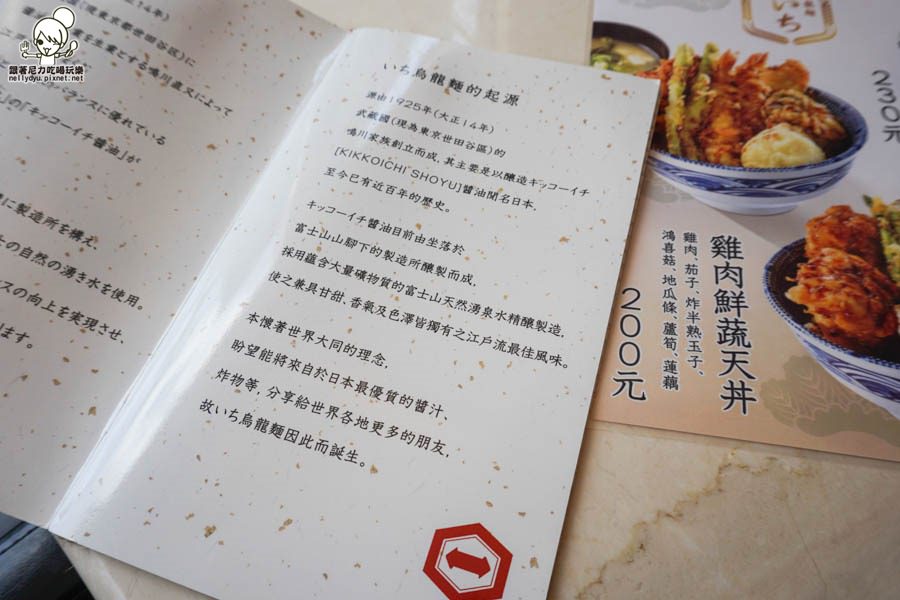 跟著尼力吃喝玩樂
nellydyu.pixnet.net
世田谷区)に
を生業にする鳴川直又によって
ランスに優れている
「キッコーイチ醤油」が
に製造所を構え、
の自然の湧き水を使用。
スの向上を実現させ、
います。
いち烏龍麵的起源
源由1925年(大正14年)
武蔵國(現為東京世田谷區)的
鳴川家族創立而成,其主要是以釀造キッコーイチ
[KIKKOICHI SHOYU]醬油聞名日本,
至今已有近百年的歷史。
キッコーイチ醬油目前由坐落於
富士山山腳下的製造所釀製而成,
採用蘊含大量礦物質的富士山天然湧泉水精釀製造,
使之兼具甘甜、香氣及色澤皆獨有之江戶流最佳風味。
本懷著世界大同的理念,
盼望能將來自於日本最優質的醬汁,
炸物等, 分享給世界各地更多的朋友,
故いち烏龍麵因此而誕生。
いち
230元
雞肉鮮蔬天丼
雞肉、茄子、炸半熟玉子、
鴻喜菇、地瓜條、蘆筍、蓮藕
200元